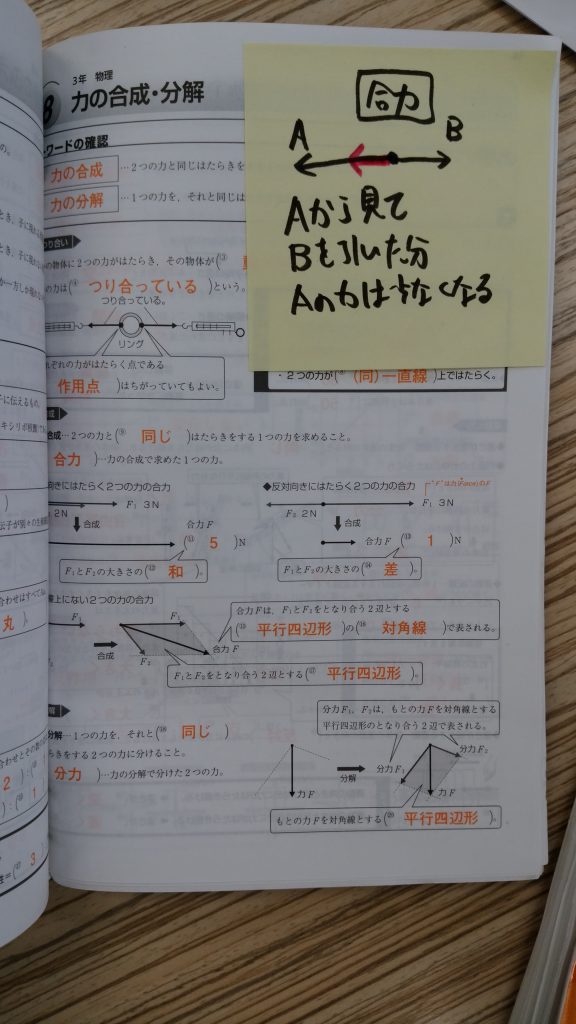 3年 物理
力の合成・分解
ワードの確認
力の合成 …2つの力と同じはたらきを
力の分解 …1つの力を，それと同じは
合力
A B
Aから見て
Bを引いた分
Aの力は少なくなる
つり合い
の物体に2つの力がはたらき，その物体が(③
の力は(④ つり合っている )という。
つり合っている。
リング
れぞれの力がはたらく点である
作用点 )はちがっていてもよい。
・2つの力が( (同)一直線 )上ではたらく。
合成…2つの力と(⑨ 同じ )はたらきをする1つの力を求めること。
合力 )…力の合成で求めた1つの力。
向きにはたらく2つの力の合力
F₂ 2N F₁ 3N
合成 合力F
(⑪ 5 )N
F₁とF₂の大きさの(⑫ 和 )。
◆反対向きにはたらく2つの力の合力
F₂ 2N F₁ 3N
合成
合力F (⑬ 1 )N
F₁とF₂の大きさの(⑭ 差 )。
線上にない2つの力の合力
F₁ F₁
合成 F₂ 合力F
合力Fは，F₁とF₂をとなり合う2辺とする
(⑮ 平行四辺形 )の(⑯ 対角線 )で表される。
F₁とF₂をとなり合う2辺とする(⑰ 平行四辺形 )。
分解…1つの力を，それと(⑱ 同じ )
らきをする2つの力に分けること。
分力 )…力の分解で分けた2つの力。
分力F₁，F₂は，もとの力Fを対角線とする
平行四辺形のとなり合う2辺で表される。
力F
分解
分力F₁ 分力F₂
力F
もとの力Fを対角線とする(⑳ 平行四辺形 )。